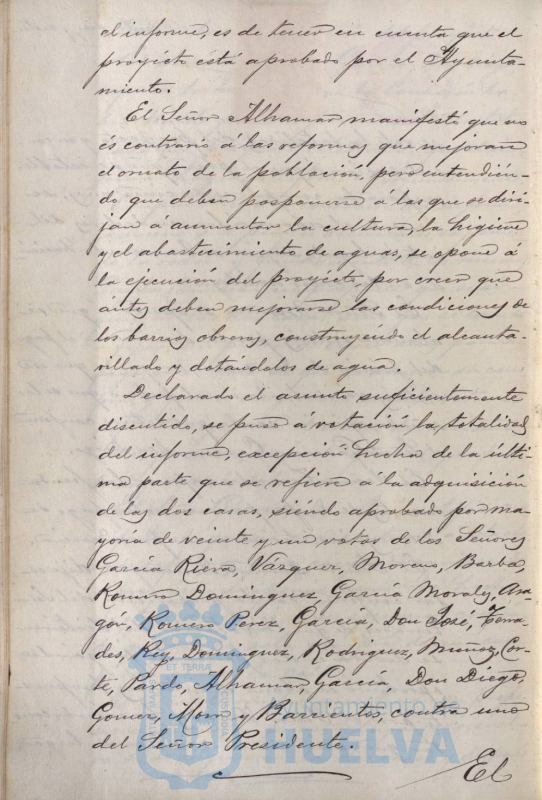 el informe, es de tener en cuenta que el
proyécto está aprobado por el Ayunta-
miento.
El Señor Alhamar manifestó que no
és contrario á las reformas que mejoran
el ornato de la población, pero entendién-
do que deben posponerse á las que se diri-
jan á aumentar la cultura, la higiene
y el abastecimiento de aguas, se opone á
la ejecución del proyécto, por creer que
antes deben mejorarse las condiciones de
los barrios obreros, construyéndo el alcanta-
rillado y dotándolos de agua.
Declarado el asunto suficientemente
discutido, se puso á votación la totalidad
del informe, excepción hecha de la últi-
ma parte que se refiere á la adquisición
de las dos casas, siéndo aprobado por ma-
yoria de veinte y un votos de los Señores
García Riera, Vázquez, Moreno, Barba,
Romero Dominguez, García Morales, Ara-
gón, Romero Perez, García, Don José, Terra-
des, Rey, Dominguez, Rodriguez, Muñoz, Cor-
te, Pardo, Alhamar, García, Don Diego,
Gomez, Mora y Barrientos, contra uno
del Señor Presidente.
El
ET TERRÆ
Ayuntamiento de
HUELVA